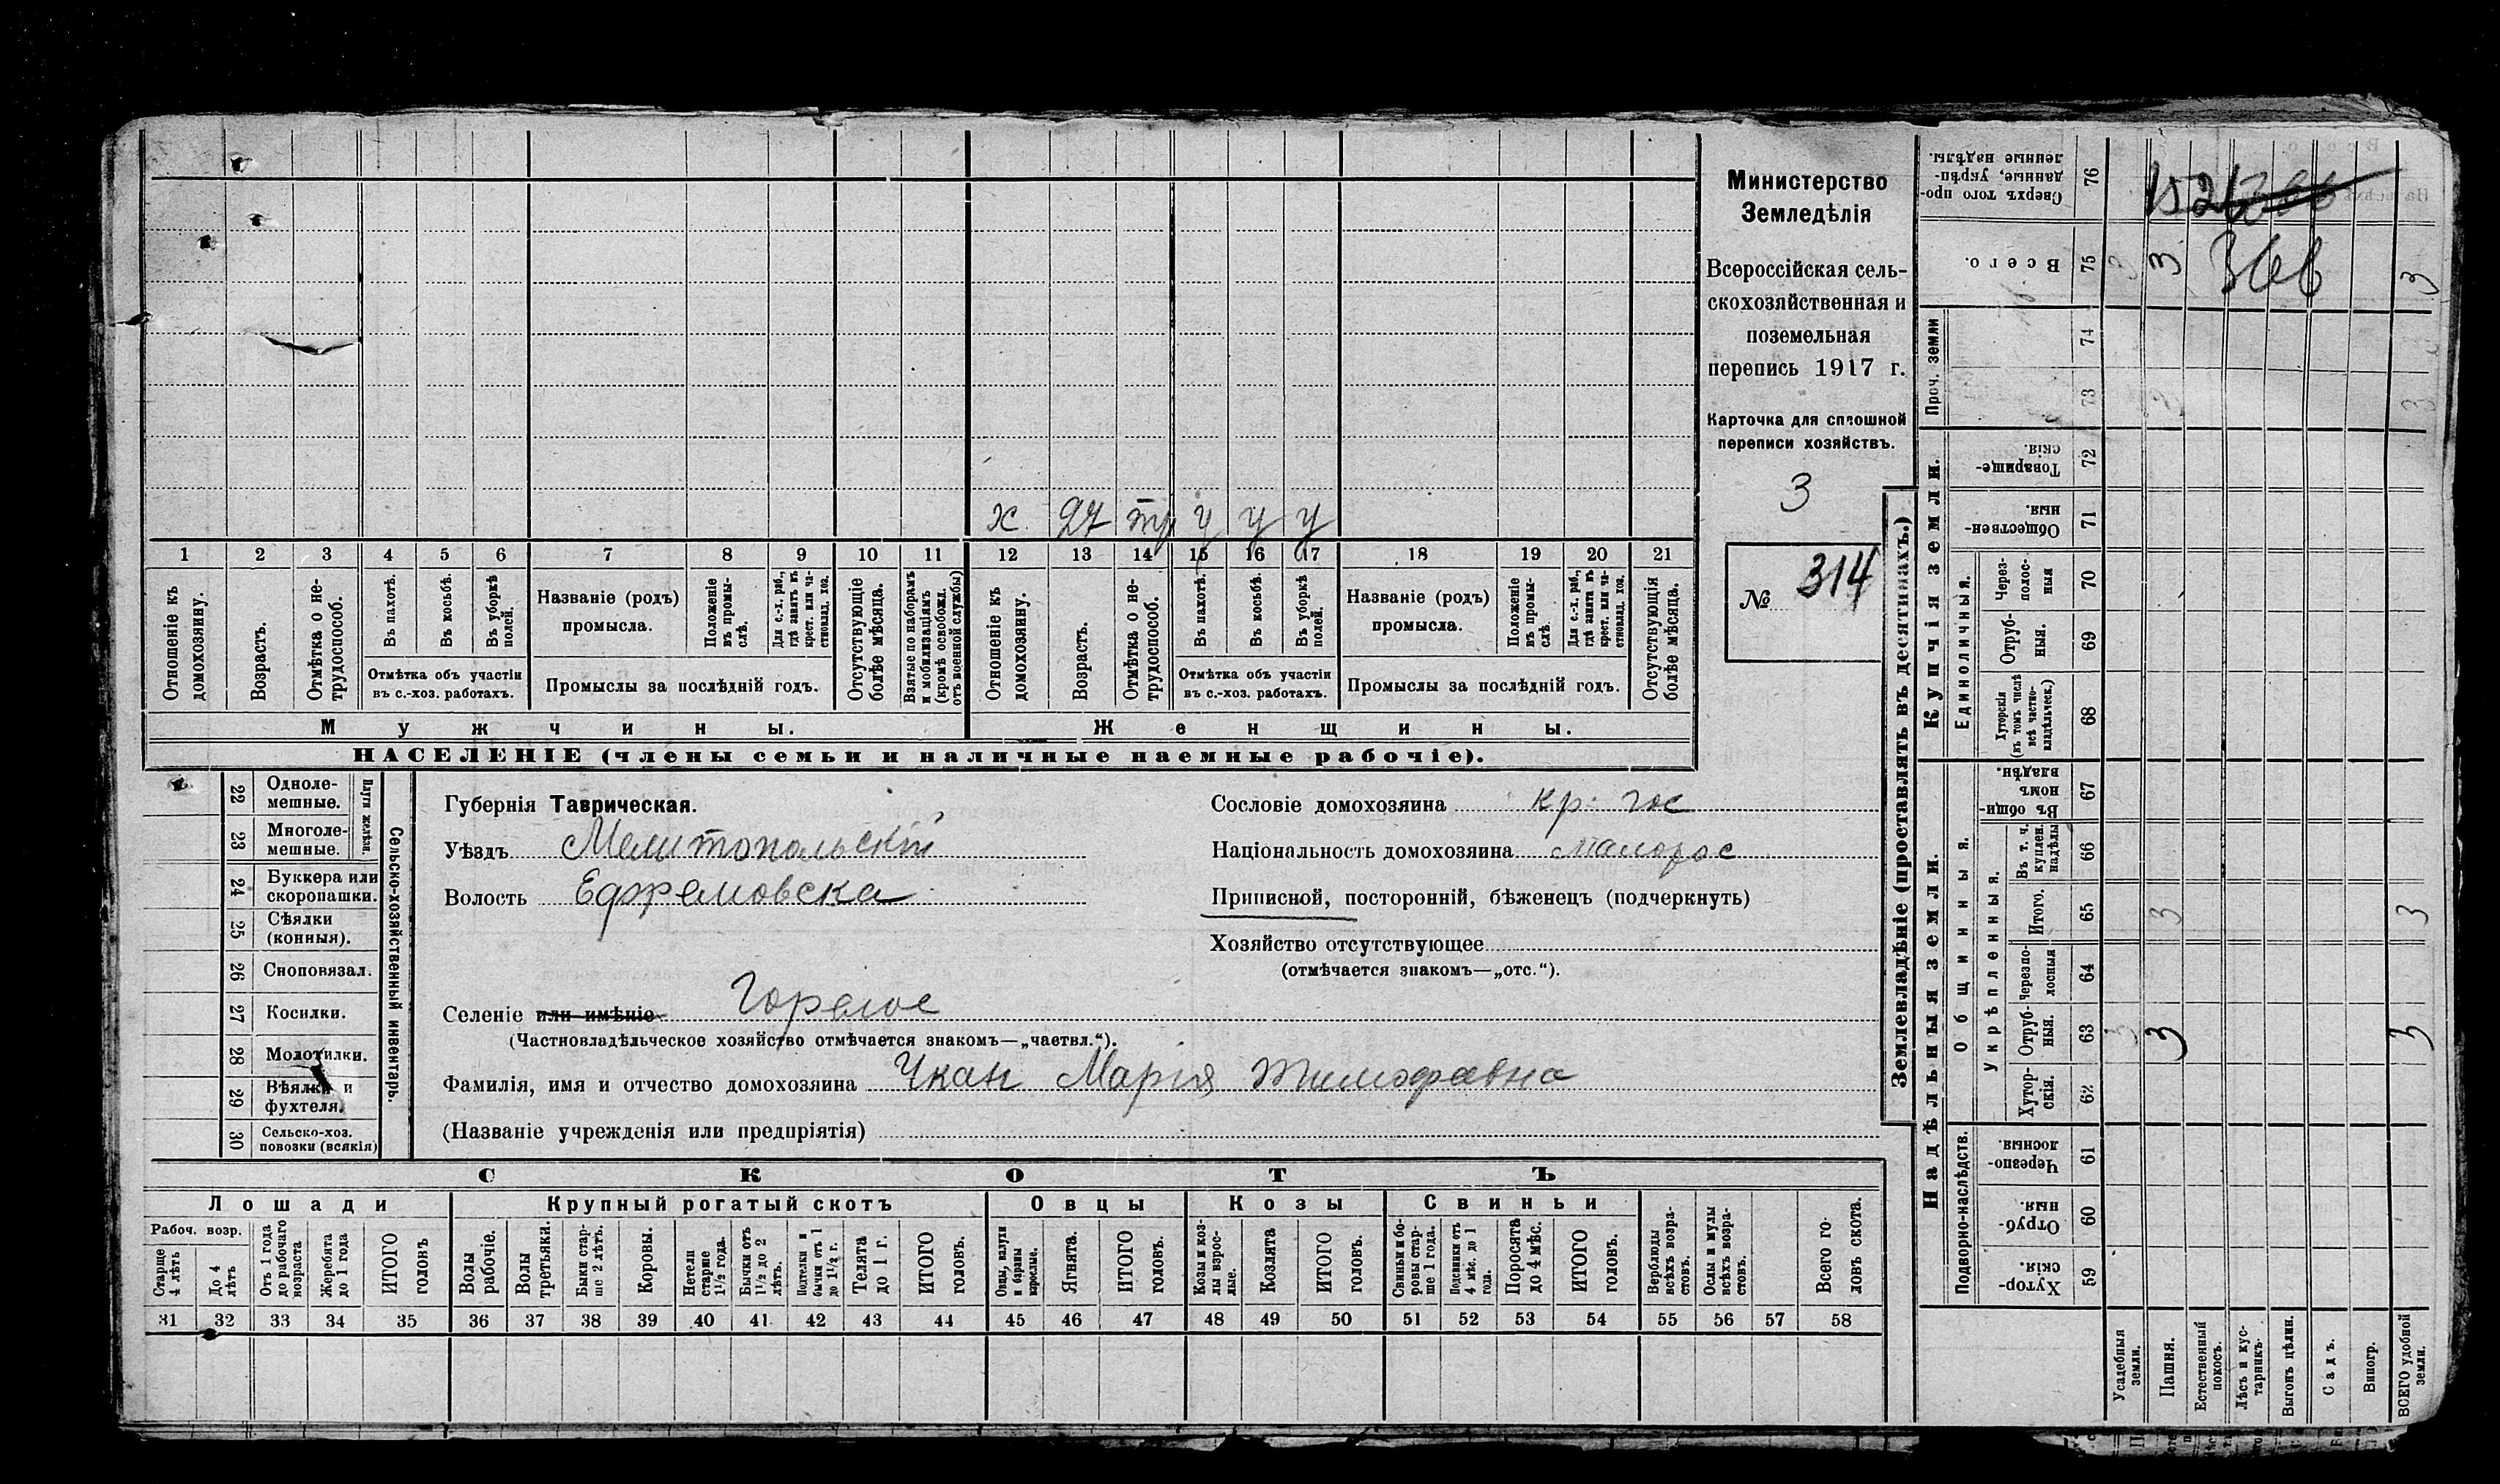 Министерство
Земледѣлія
Всероссійская сель-
скохозяйственная и
поземельная
перепись 1917 г.
Карточка для сплошной
переписи хозяйствъ.
3
№ 314
х 27 тр у у у
1 2 3 4 5 6 7 8 9 10 11 12 13 14 15 16 17 18 19 20 21
Отношеніе къ домохозяину.
Возрастъ.
Отмѣтка о не-трудоспособ.
Въ пахотѣ.
Въ косьбѣ.
Въ уборкѣ полей.
Отмѣтка объ участіи
въ с.-хоз. работахъ.
Названіе (родъ)
промысла.
Положеніе въ промы-слѣ.
Для с.-х. раб., гдѣ занятъ въ крест. или ча-стновлад. хоз.
Промыслы за послѣдній годъ.
Отсутствующіе болѣе мѣсяца.
Взятые по наборамъ и мобилизаціямъ (кромѣ освобожд. отъ военной службы)
Отношеніе къ домохозяину.
Возрастъ.
Отмѣтка о не-трудоспособ.
Въ пахотѣ.
Въ косьбѣ.
Въ уборкѣ полей.
Отмѣтка объ участіи
въ с.-хоз. работахъ.
Названіе (родъ)
промысла.
Положеніе въ промы-слѣ.
Для с.-х. раб., гдѣ занятъ въ крест. или ча-стновлад. хоз.
Промыслы за послѣдній годъ.
Отсутствующія болѣе мѣсяца.
Мужчины.
Женщины.
НАСЕЛЕНІЕ (члены семьи и наличные наемные рабочіе).
22 Одноле-мешные.
23 Многоле-мешные.
Плуги желѣзн.
24 Буккера или скоропашки.
25 Сѣялки (конныя).
26 Сноповязал.
27 Косилки.
28 Молотилки.
29 Вѣялки и фухтеля.
30 Сельско-хоз. повозки (всякія)
Сельско-хозяйственный инвентарь.
Губернія Таврическая.
Уѣздъ Мелитопольскій
Волость Ефремовска
Селеніе или имѣніе Горелое
(Частновладѣльческое хозяйство отмѣчается знакомъ—„частвл.“).
Фамилія, имя и отчество домохозяина Чкан Марія Тимофевна
(Названіе учрежденія или предпріятія)
Сословіе домохозяина кр. гос
Національность домохозяина малорос
Приписной, посторонній, бѣженецъ (подчеркнуть)
Хозяйство отсутствующее
(отмѣчается знакомъ—„отс.“).
СКОТЪ
Лошади
Крупный рогатый скотъ
Овцы
Козы
Свиньи
Рабоч. возр.
Старше 4 лѣтъ
До 4 лѣтъ
Отъ 1 года до рабочаго возраста
Жеребята до 1 года
ИТОГО головъ
Волы рабочіе.
Волы третьяки.
Быки стар-ше 2 лѣтъ.
Коровы.
Нетели старше 1½ года.
Бычки отъ 1½ до 2 лѣтъ.
Подтелки и бычки отъ 1 до 1½ г.
Телята до 1 г.
ИТОГО головъ.
Овцы, валухи и бараны взрослые.
Ягнята.
ИТОГО головъ.
Козы и коз-лы взрос-лые.
Козлята
ИТОГО головъ.
Свиньи и бо-ровы стар-ше 1 года.
Подсвинки отъ 4 мѣс. до 1 года.
Поросята до 4 мѣс.
ИТОГО головъ.
Верблюды всѣхъ возра-стовъ.
Ослы и мулы всѣхъ возра-стовъ.
Всего го-ловъ скота.
31 32 33 34 35 36 37 38 39 40 41 42 43 44 45 46 47 48 49 50 51 52 53 54 55 56 57 58
Землевладѣніе (проставлять въ десятинахъ.)
Надѣльныя земли.
Купчія земли.
Проч. земли
Подворно-наслѣдств.
Общинныя.
Укрѣпленныя.
Единоличныя.
Сверхъ того про-данные, укрѣп-ленные надѣлы. 76
Всего. 75 3 3 3
74
73
Товарище-скія. 72
Обществен-ныя. 71
Через-полос-ныя 70
Отруб-ныя. 69
Хуторскія (въ томъ числѣ всѣ частно-владѣльческ.) 68
Въ общи-номъ владѣн. 67
Въ т. ч. куплен. надѣлы 66
Итого. 65 3 3
Черезпо-лосныя 64
Отруб-ныя. 63 3 3 3
Хутор-скія. 62
Черезпо-лосныя. 61
Отруб-ныя. 60
Хутор-скія. 59
Усадебныя земли.
Пашня.
Естественный покосъ.
Лѣсъ и кус-тарникъ.
Выгонъ цѣлин.
Садъ.
Виногр.
ВСЕГО удобной земли.